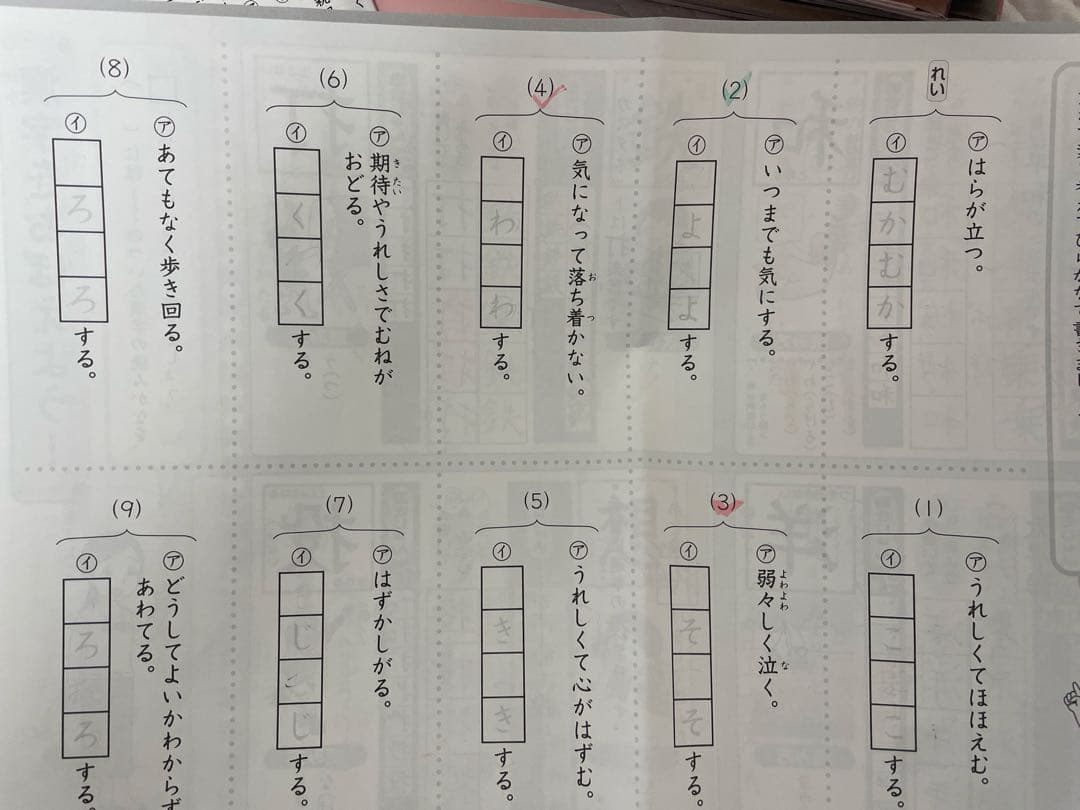 れい
㋐はらが立つ。
㋑むかむかする。
(1)
㋐うれしくてほほえむ。
㋑こ こする。
(2)
㋐いつまでも気にする。
㋑よ よする。
(3)
㋐弱々しく泣く。
よわよわ
な
㋑そ そする。
(4)
㋐気になって落ち着かない。
お
つ
㋑わ わする。
(5)
㋐うれしくて心がはずむ。
㋑き きする。
(6)
㋐期待やうれしさでむねが
きたい
おどる。
㋑く くする。
(7)
㋐はずかしがる。
㋑じ じする。
(8)
㋐あてもなく歩き回る。
㋑ろ ろする。
(9)
㋐どうしてよいかわからず
あわてる。
㋑ろ ろする。